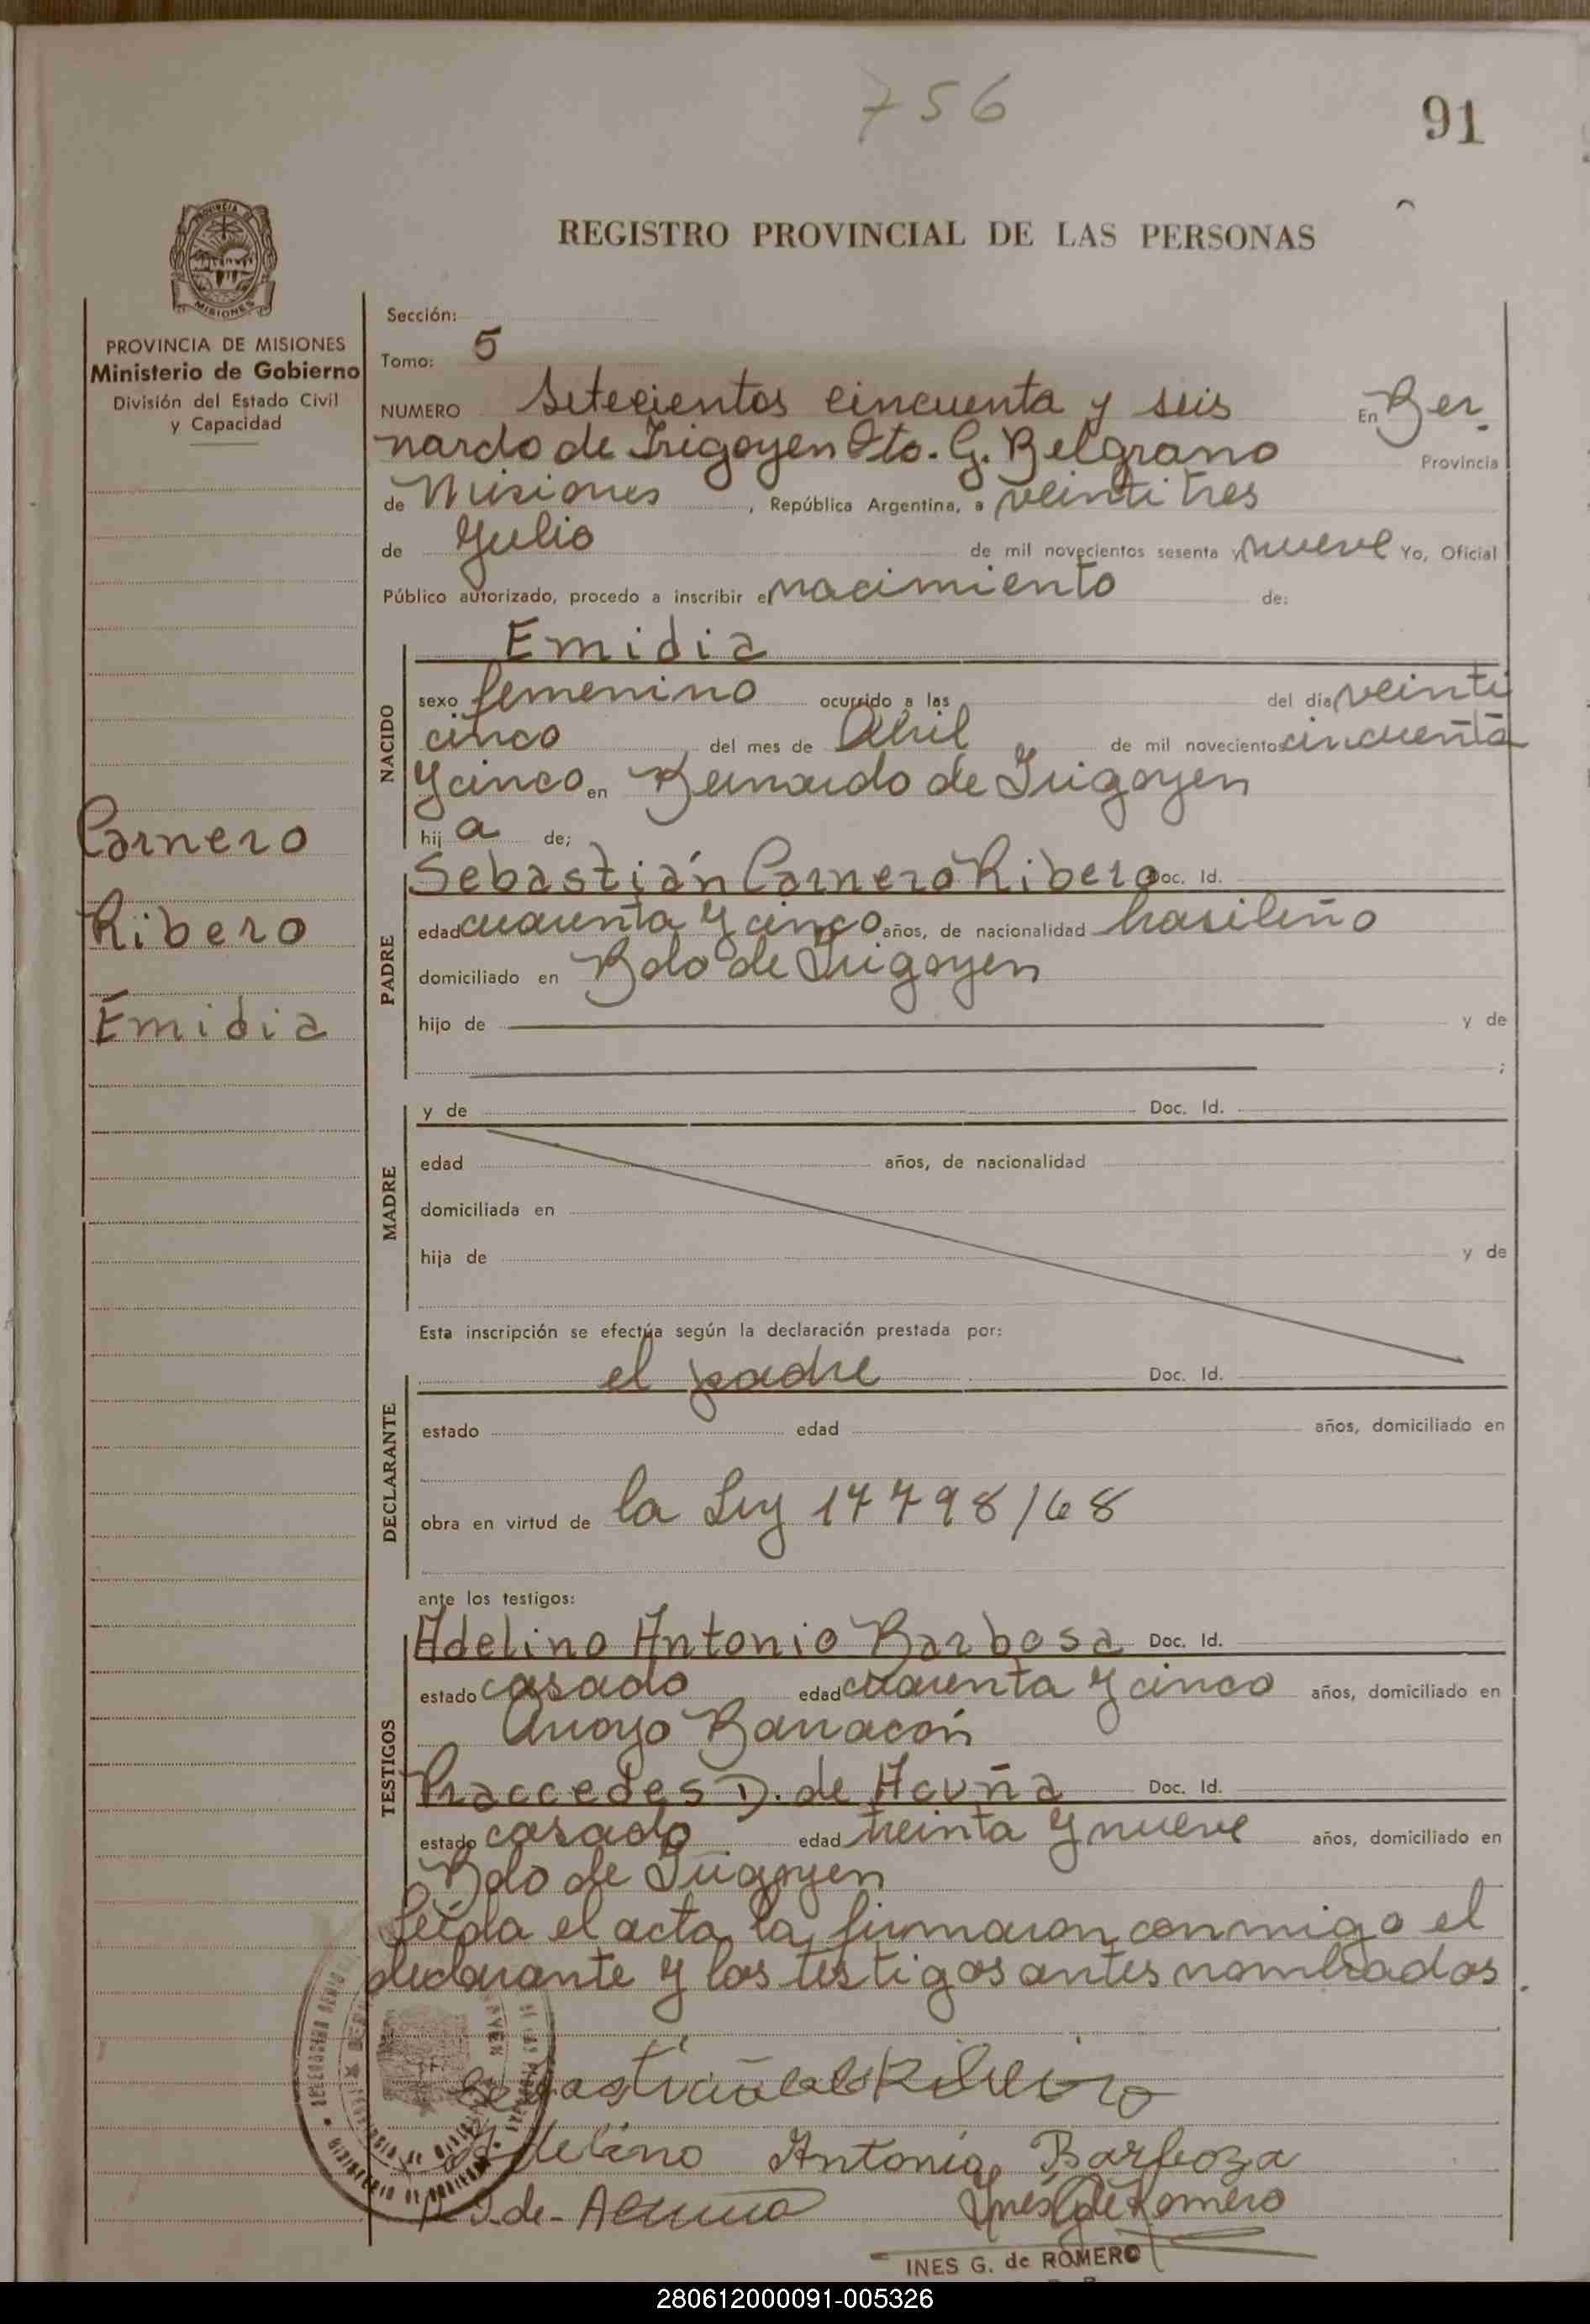 756
91
REGISTRO PROVINCIAL DE LAS PERSONAS
PROVINCIA DE
MISIONES
PROVINCIA DE MISIONES
Ministerio de Gobierno
División del Estado Civil
y Capacidad
Carnero
Ribero
Emidia
Sección:
Tomo: 5
NUMERO Setecientos cincuenta y seis En Ber
nardo de Irigoyen Dto. G. Belgrano Provincia
de Misiones, República Argentina, a veinti tres
de Julio de mil novecientos sesenta y nueve Yo, Oficial
Público autorizado, procedo a inscribir el nacimiento de:
NACIDO
Emidia
sexo femenino ocurrido a las del día veinti
cinco del mes de Abril de mil novecientos cincuenta
y cinco en Bernardo de Irigoyen
hij a de;
PADRE
Sebastián Carnero Ribero Doc. Id.
edad cuarenta y cinco años, de nacionalidad brasileño
domiciliado en Bdo de Irigoyen
hijo de y de
;
MADRE
y de Doc. Id.
edad años, de nacionalidad
domiciliada en
hija de y de
Esta inscripción se efectúa según la declaración prestada por:
DECLARANTE
el padre Doc. Id.
estado edad años, domiciliado en
obra en virtud de la Ley 17798/68
ante los testigos:
TESTIGOS
Adelino Antonio Barbosa Doc. Id.
estado casado edad cuarenta y cinco años, domiciliado en
Arroyo Barracón
Praccedes D. de Acuña Doc. Id.
estado casado edad treinta y nueve años, domiciliado en
Bdo de Irigoyen
Leída el acta, la firmaron conmigo el
declarante y los testigos antes nombrados.
Adelino Antonio Barboza
P. D. de - Acuña Ines G de Romero
INES G. de ROMERO
280612000091-005326